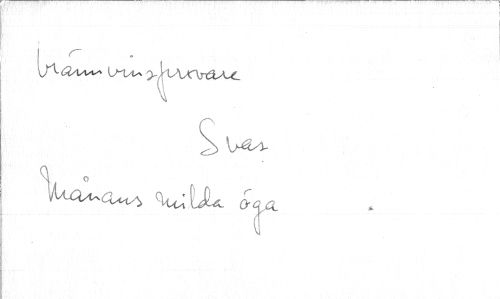 brännvinsprovare
Svas
Månans milda öga